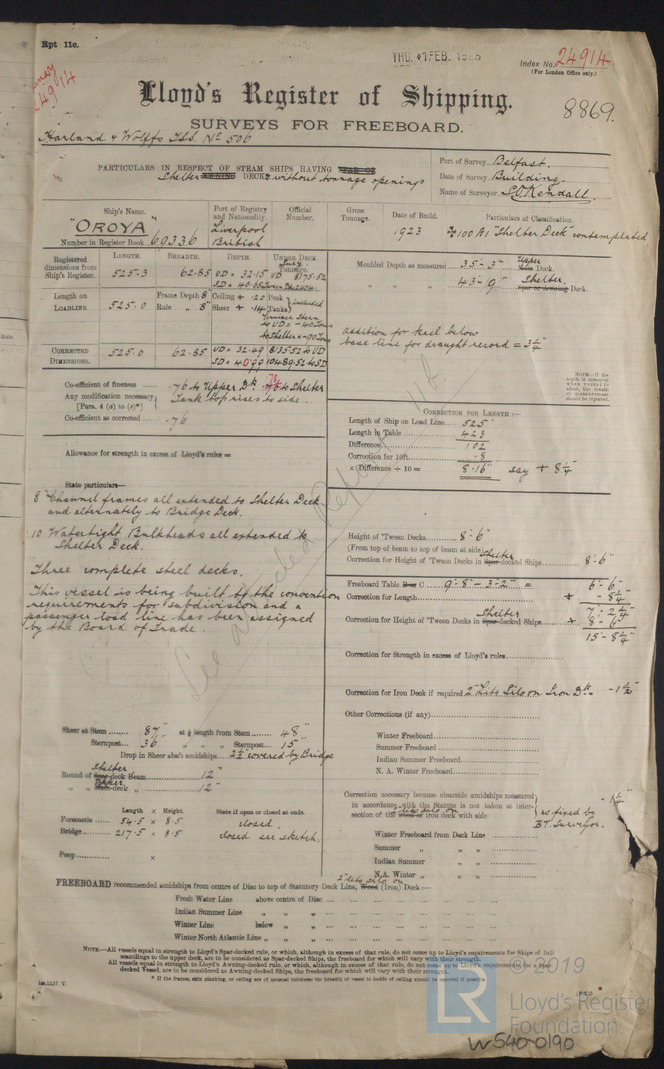 Rpt 11c.
THU. 1 FEB. 1923
Index No. 24914
(For London Office only.)
24914
8869.
Lloyd's Register of Shipping.
SURVEYS FOR FREEBOARD.
Harland & Wolff's Ltd. No 506
PARTICULARS IN RESPECT OF STEAM SHIPS HAVING
Shelter DECKS without tonnage openings
Port of Survey Belfast.
Date of Survey Building.
Name of Surveyor Kendall.
Ship's Name. "OROYA"
Number in Register Book 69336
Port of Registry and Nationality. Liverpool British
Official Number.
Gross Tonnage.
Date of Build. 1923
Particulars of Classification.
100 A1 "Shelter Deck" contemplated
Registered dimensions from Ship's Register.
LENGTH. 525.3
BREADTH. 62.85
DEPTH. UD = 32.15
SD = 40.65
UNDER DECK Tonnage. UD 8175.52
Length on LOADLINE 525.0
Frame Depth 8"
Rule " 8"
Ceiling + .20
Sheer + .14
Peak Tanks included
CORRECTED DIMENSIONS. 525.0 62.85 UD = 32.49 8135.52 to UD
SD = 40.99 10489.52 to SD
Moulded Depth as measured 35'-3" Upper Deck.
" " " 43'-9" Shelter Deck.
Addition for keel below
base line for draught record = 3 1/4"
Co-efficient of fineness ...... .76 to Upper Dk. .78 to Shelter
Any modification necessary [Para. 4 (a) to (e)*] Tank top rises to side.
Co-efficient as corrected ..... .76
CORRECTION FOR LENGTH :—
Length of Ship on Load Line 525
Length in Table 423
Difference 102
Correction for 10ft. .8
× Difference ÷ 10 = 8.16 say + 8 1/4"
Allowance for strength in excess of Lloyd's rules =
State particulars—
8" Channel frames all extended to Shelter Deck
and alternately to Bridge Deck.
10 Watertight Bulkheads all extended to
Shelter Deck.
Three complete steel decks.
This vessel is being built to the convention
requirements for subdivision and a
passenger load line has been assigned
by the Board of Trade.
Height of 'Tween Decks 8'-6"
(From top of beam to top of beam at side)
Correction for Height of 'Tween Decks in Shelter-decked Ships 8'-6"
Freeboard Table C 9'-8" - 3'-2" = 6'-6"
Correction for Length + 8 1/4"
7'-2 1/4"
Correction for Height of 'Tween Decks in Shelter-decked Ships + 8'-6"
15'-8 1/4"
Correction for Strength in excess of Lloyd's rules
Correction for Iron Deck if required 2" Lito Silo on Iron Dk. -1 1/2"
Other Corrections (if any)
Winter Freeboard
Summer Freeboard
Indian Summer Freeboard
N. A. Winter Freeboard
Sheer at Stem 87" at 1/8 length from Stem 48"
Sternpost 36 " " " Sternpost 15"
Drop in Sheer abaft amidships 2 1/2" covered by Bridge
Round of Shelter deck Beam 12"
" " Upper deck " 12"
Length × Height. State if open or closed at ends.
Forecastle 54.5 × 8.5 closed.
Bridge 217.5 × 8.5 closed see sketch.
Poop ×
Correction necessary because clearside amidships measured
in accordance with the Statute is not taken at inter-
section of the iron deck with side
as fixed by B.T. Surveyor.
Winter Freeboard from Deck Line
Summer " " "
Indian Summer " "
N.A. Winter " " "
FREEBOARD recommended amidships from centre of Disc to top of Statutory Deck Line, Wood (Iron) Deck :—
Fresh Water Line above centre of Disc
Indian Summer Line " " "
Winter Line below " "
Winter North Atlantic Line " " "
NOTE.—All vessels equal in strength to Lloyd's Spar-decked rule, or which, although in excess of that rule, do not come up to Lloyd's requirements for Ships of full
scantlings to the upper deck, are to be considered as Spar-decked Ships, the freeboard for which will vary with their strength.
All vessels equal in strength to Lloyd's Awning-decked rule, or which, although in excess of that rule, do not come up to Lloyd's requirements for a Spar
decked Vessel, are to be considered as Awning-decked Ships, the freeboard for which will vary with their strength.
© 2019
LR
Lloyd's Register
Foundation
W540-0190